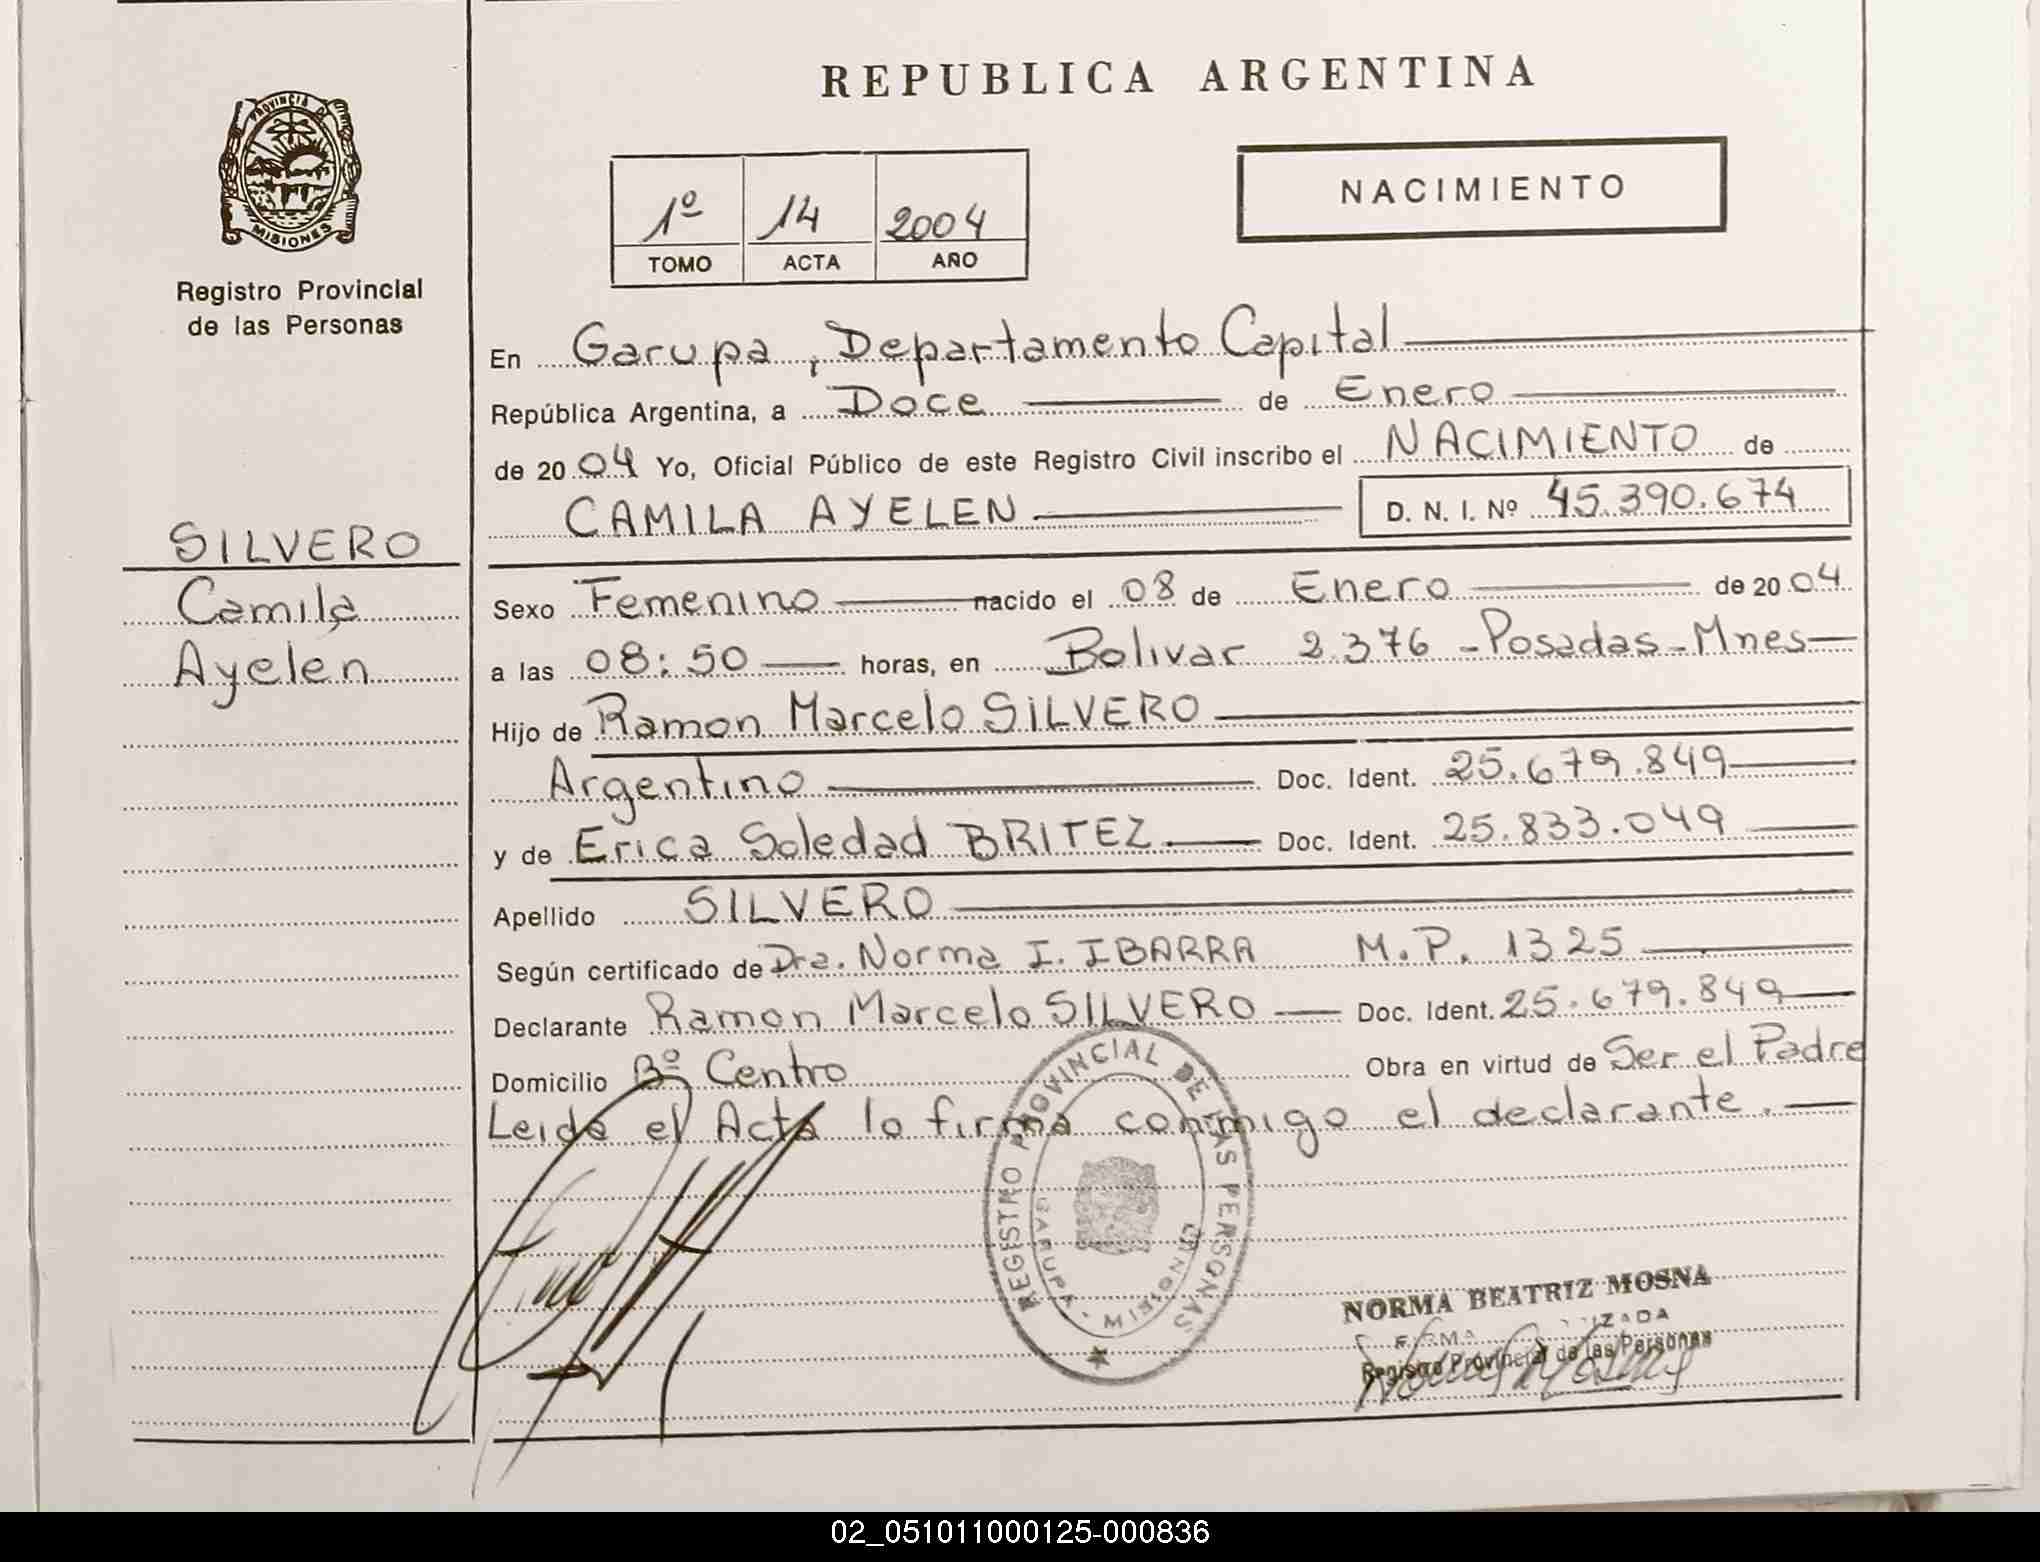 REPUBLICA ARGENTINA
PROVINCIA DE
MISIONES
Registro Provincial
de las Personas
NACIMIENTO
1º 14 2004
TOMO ACTA AÑO
SILVERO
Camila
Ayelen
En Garupa, Departamento Capital
República Argentina, a Doce de Enero
de 2004 Yo, Oficial Público de este Registro Civil inscribo el NACIMIENTO de
CAMILA AYELEN D. N. I. Nº 45.390.674
Sexo Femenino nacido el 08 de Enero de 2004
a las 08:50 horas, en Bolivar 2.376 - Posadas - Mnes
Hijo de Ramon Marcelo SILVERO
Argentino Doc. Ident. 25.679.849
y de Erica Soledad BRITEZ Doc. Ident. 25.833.049
Apellido SILVERO
Según certificado de Dra. Norma I. IBARRA M.P. 1325
Declarante Ramon Marcelo SILVERO Doc. Ident. 25.679.849
Domicilio Bº Centro Obra en virtud de Ser el Padre
Leida el Acta lo firma conmigo el declarante.
REGISTRO PROVINCIAL DE LAS PERSONAS
GARUPA - MISIONES
NORMA BEATRIZ MOSNA
FIRMA
Registro Provincial de las Personas
02_051011000125-000836